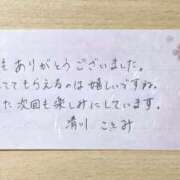 もありがとうございました。
てもらえるのは嬉しいですね。
た次回も楽しみにしています。
清川 ことみ